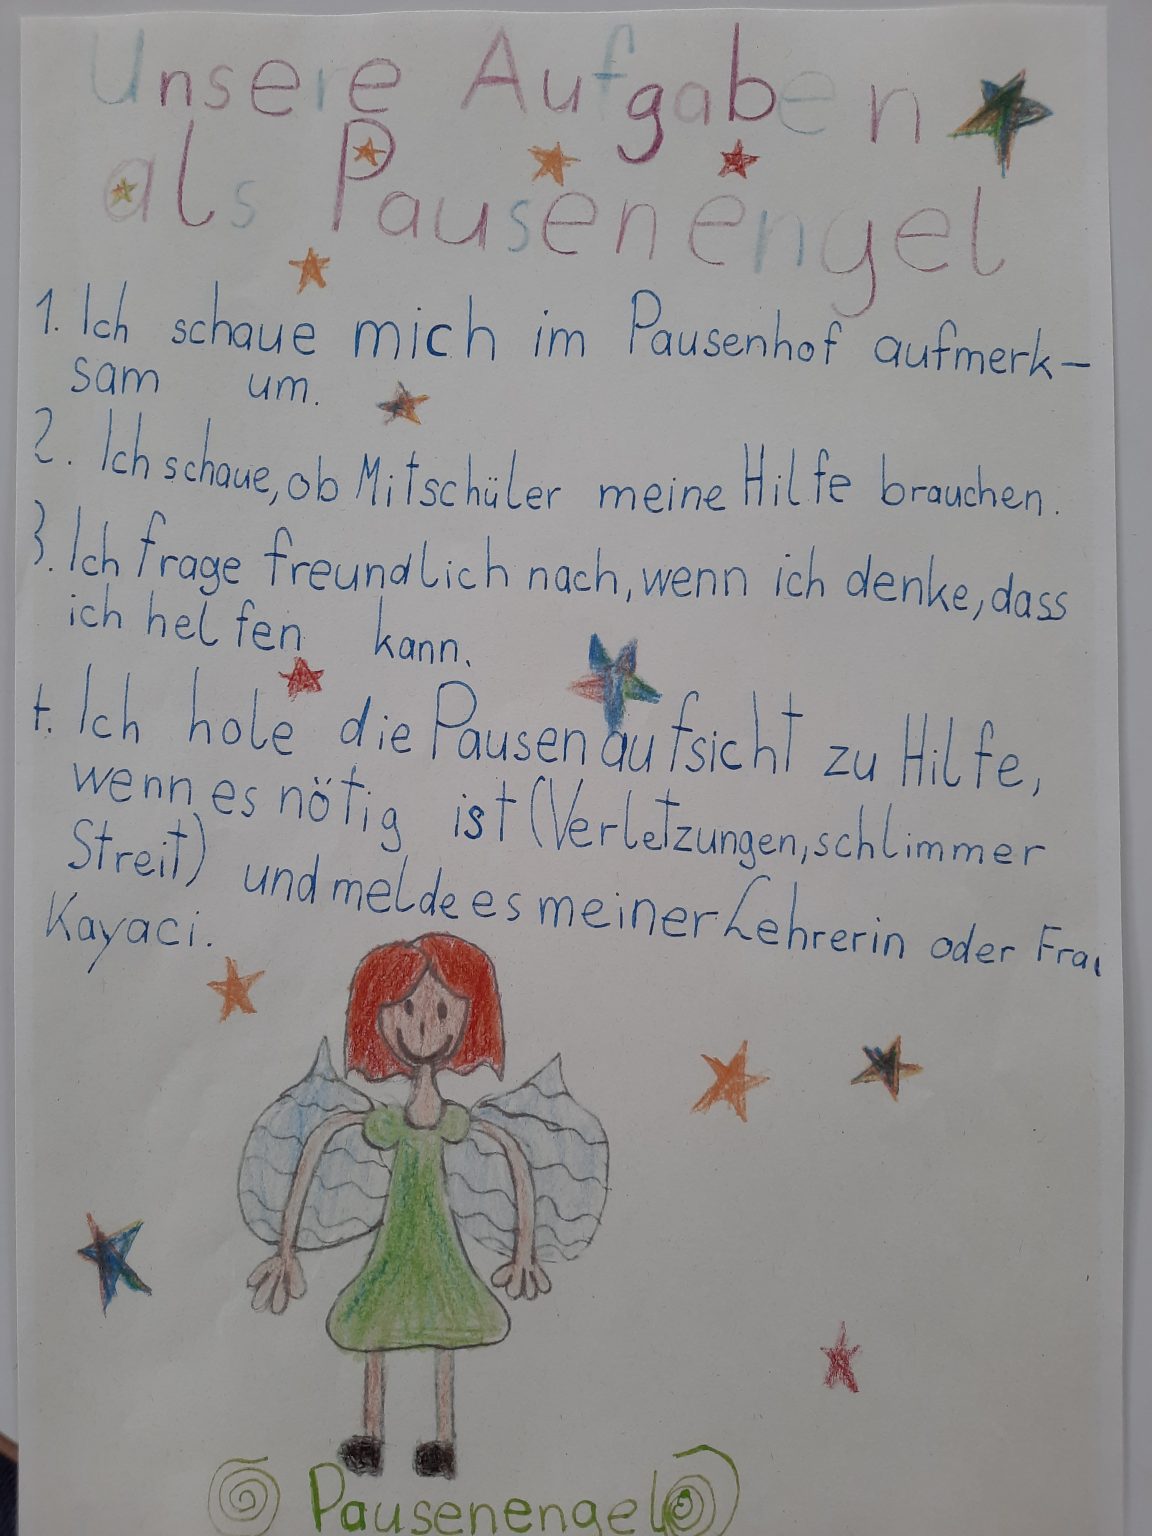 Unsere Aufgaben
als Pausenengel
1. Ich schaue mich im Pausenhof aufmerk-
sam um.
2. Ich schaue, ob Mitschüler meine Hilfe brauchen.
3. Ich frage freundlich nach, wenn ich denke, dass
ich helfen kann.
4. Ich hole die Pausenaufsicht zu Hilfe,
wenn es nötig ist (Verletzungen, schlimmer
Streit) und melde es meiner Lehrerin oder Frau
Kayaci.
Pausenengel